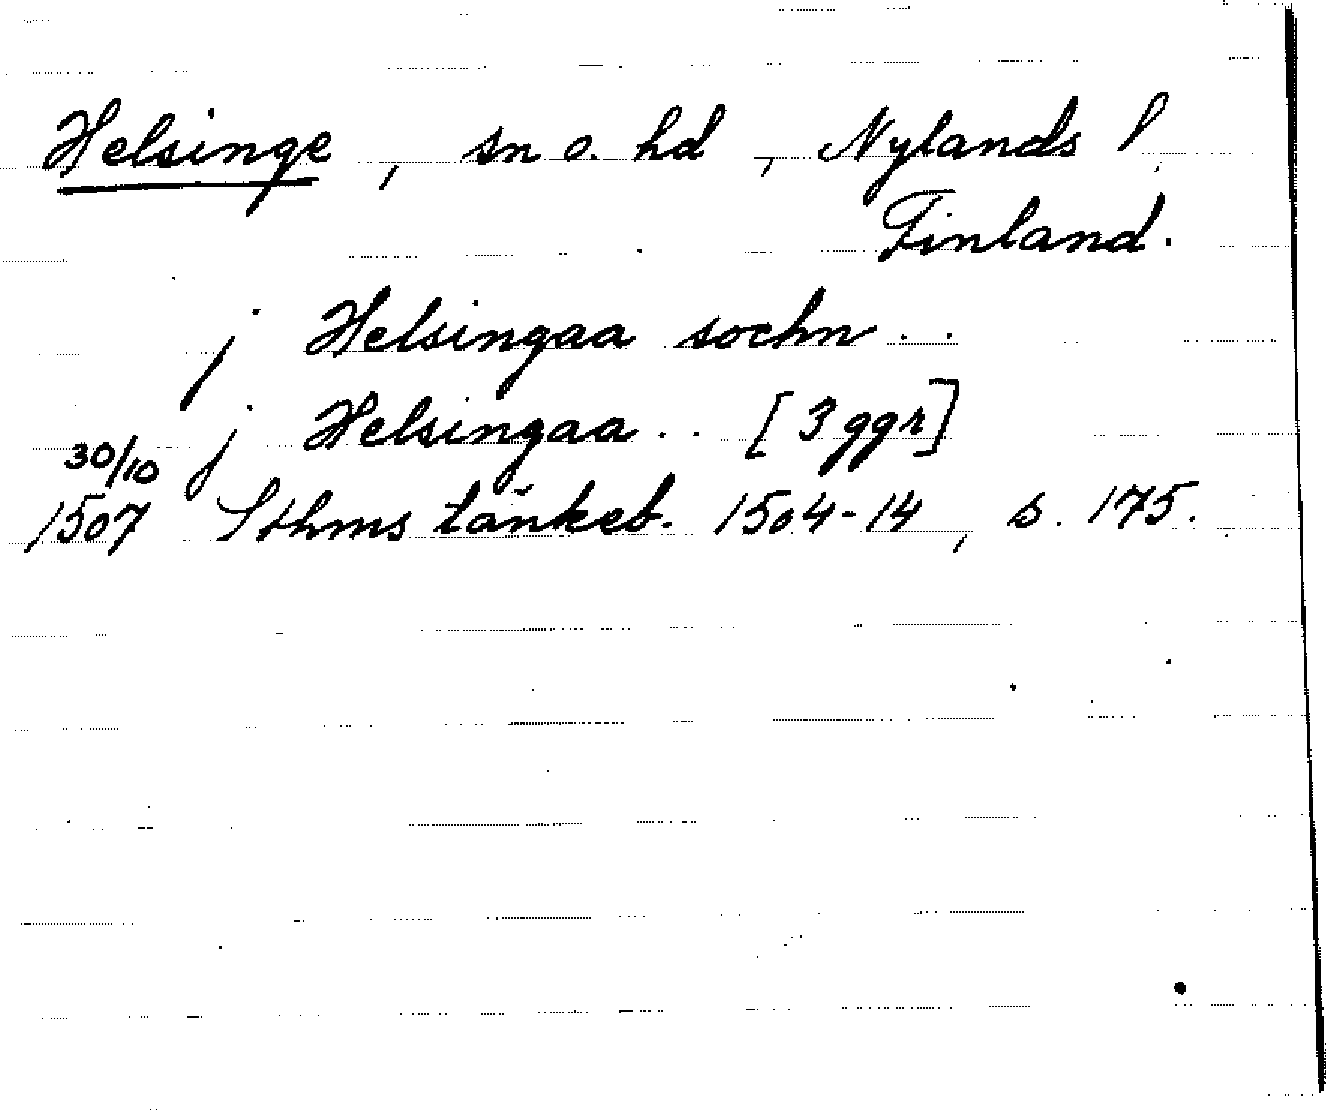 Helsinge, sn o. hd, Nylands l,
Finland.
j Helsingaa sochn . .
j Helsingaa . . [3 ggr]
30/10
1507 Sthms tänkeb. 1504-14, s. 175.